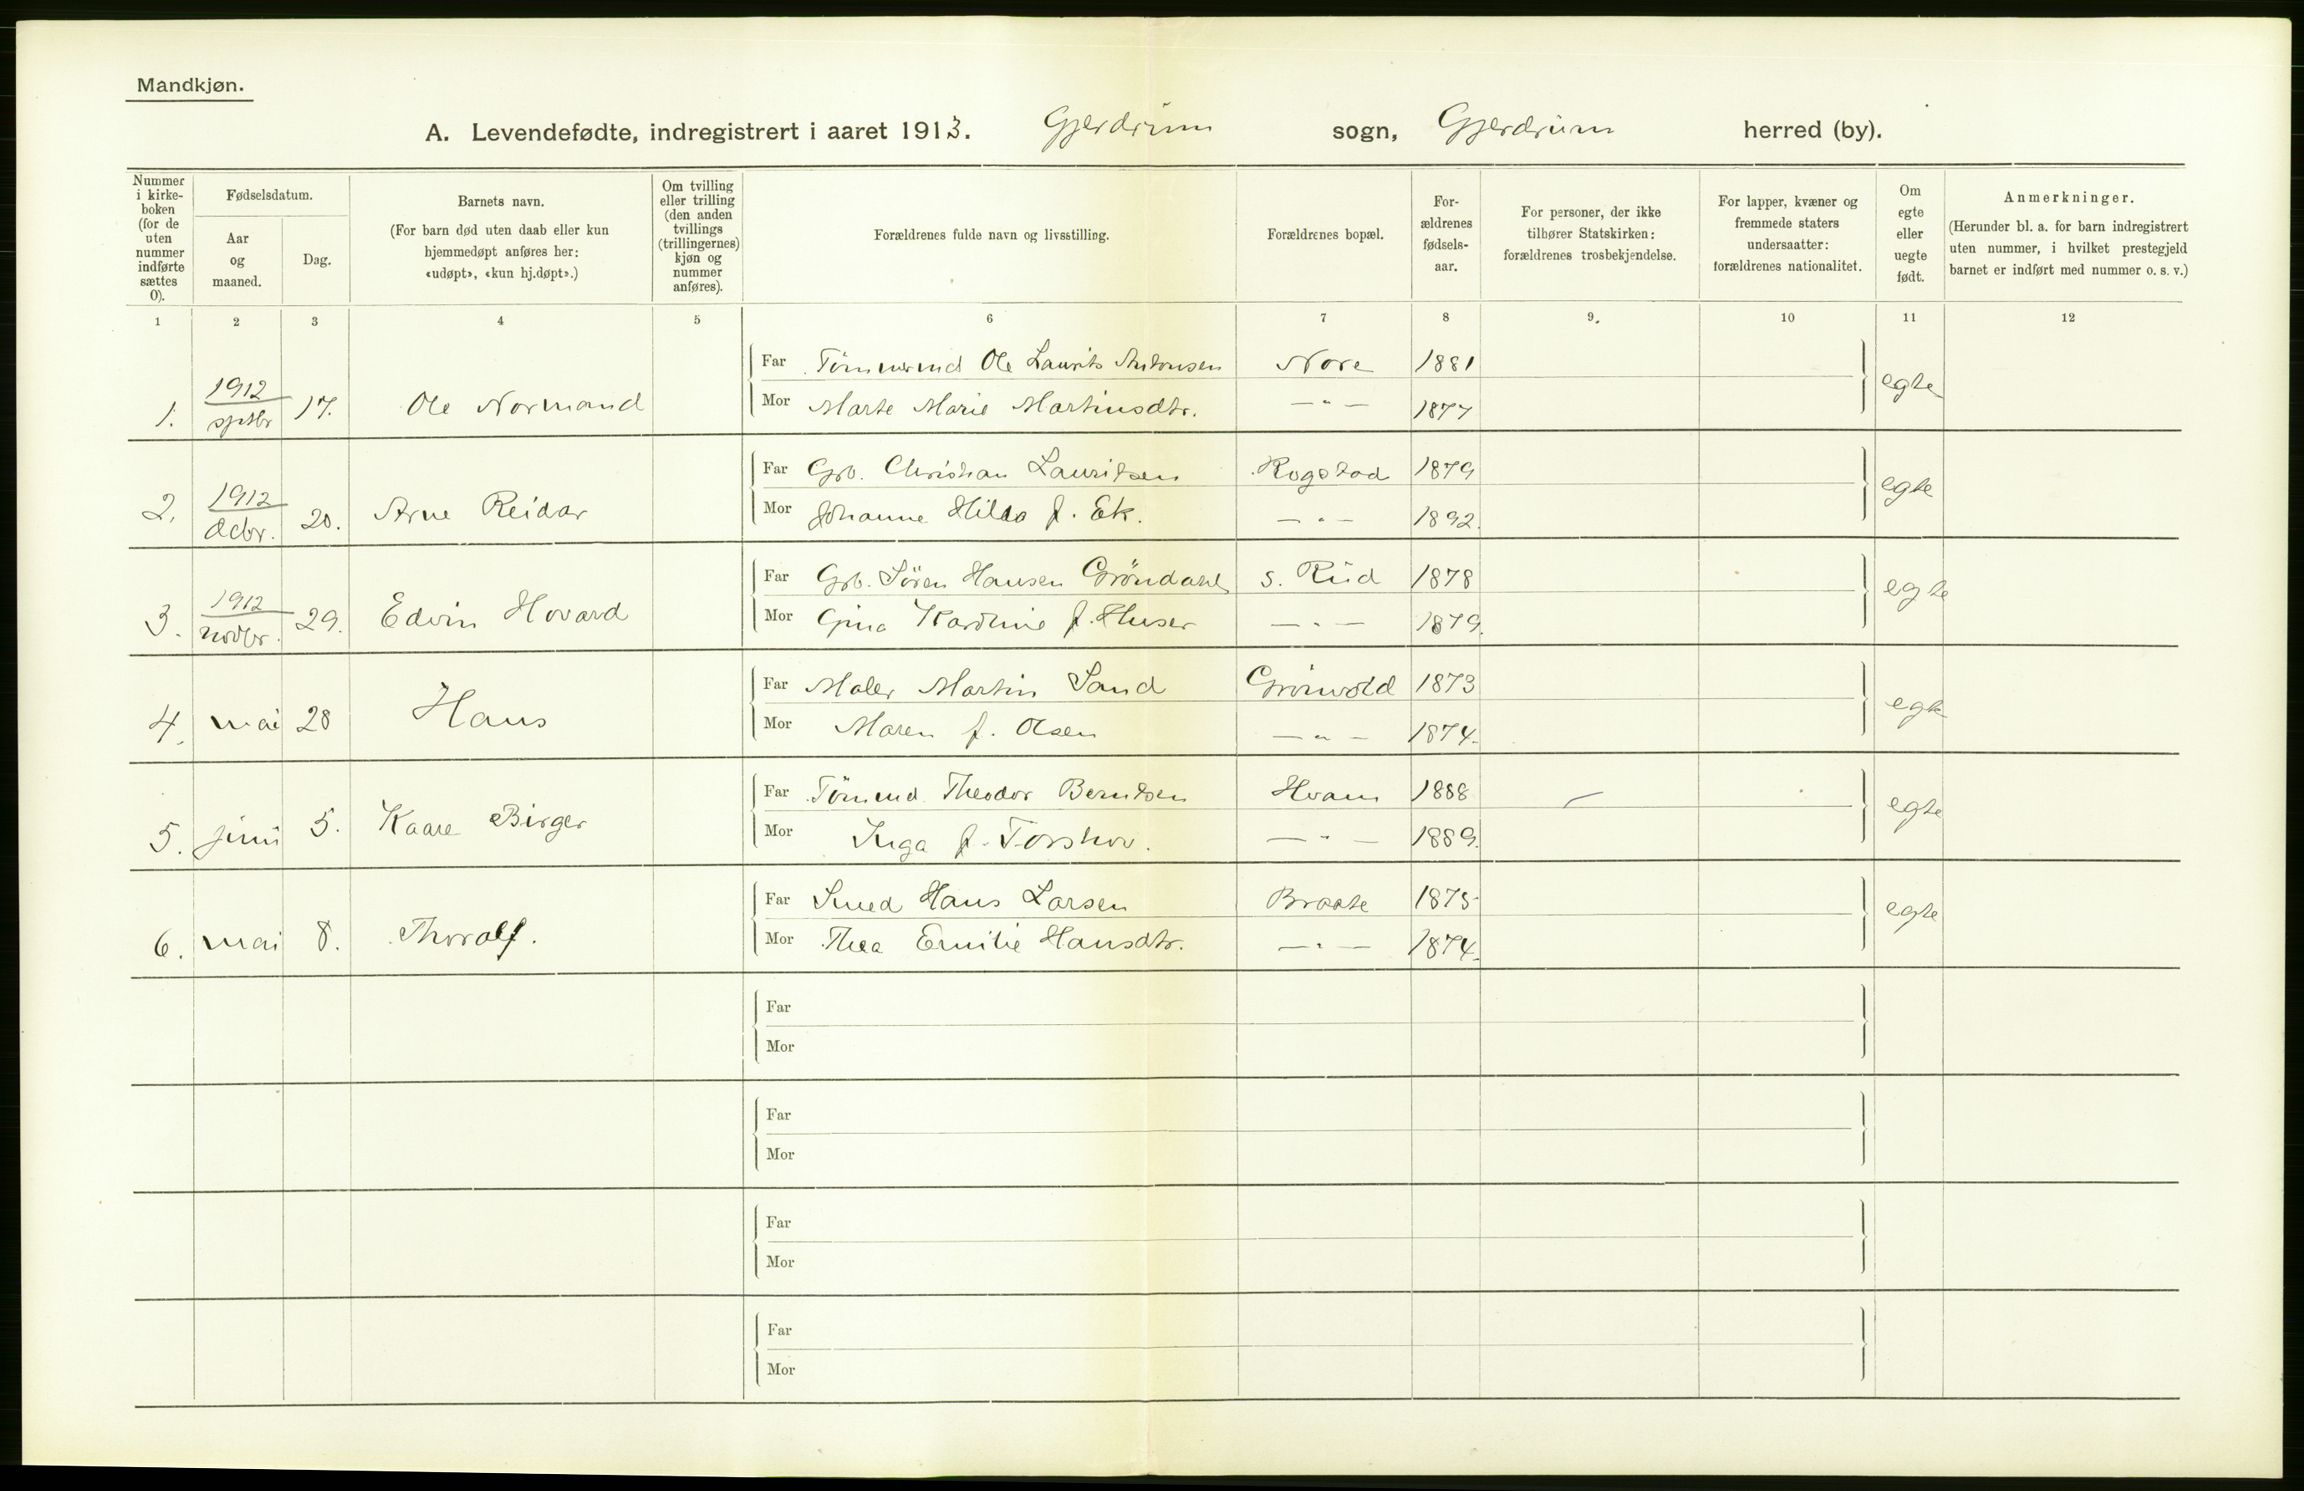 Mandkjøn.
A. Levendefødte, indregistrert i aaret 1913. Gjerdrum sogn, Gjerdrum herred (by).
Nummer i kirke-boken (for de uten nummer indførte sættes 0).
Fødselsdatum.
Aar og maaned.
Dag.
Barnets navn.
(For barn død uten daab eller kun hjemmedøpt anføres her: «udøpt», «kun hj.døpt».)
Om tvilling eller trilling (den anden tvillings (trillingernes) kjøn og nummer anføres).
Forældrenes fulde navn og livsstilling.
Forældrenes bopæl.
For-ældrenes fødsels-aar.
For personer, der ikke tilhører Statskirken: forældrenes trosbekjendelse.
For lapper, kvæner og fremmede staters undersaatter: forældrenes nationalitet.
Om egte eller uegte født.
Anmerkninger.
(Herunder bl. a. for barn indregistrert uten nummer, i hvilket prestegjeld barnet er indført med nummer o. s. v.)
1 2 3 4 5 6 7 8 9. 10 11 12
1. 1912 sptbr 17. Ole Normand egte
Far Tømmermd Ole Laurits Antonsen Nore 1881
Mor Marte Marie Martinsdtr. — " — 1877
2. 1912 dcbr. 20. Arne Reidar egte
Far Grb. Christian Lauritsen Rogstad 1879
Mor Johanne Hilda f. Ek. — " — 1892.
3. 1912 novbr. 29. Edvin Hovard egte
Far Grb. Søren Hansen Grøndahl s. Rud 1878
Mor Gina Karoline f. Huser — " — 1879.
4. mai 28 Hans egte
Far Maler Martin Sand Grønvold 1873
Mor Maren f. Olsen — " — 1874.
5. juni 5. Kaare Birger egte
Far Tømmd. Theodor Berntsen Hvam 1888
Mor Inga f. Forshov. — " — 1889.
6. mai 8. Thoralf. egte
Far Smed Hans Larsen Braate 1875
Mor Thea Emilie Hansdtr. — " — 1874.
Far
Mor
Far
Mor
Far
Mor
Far
Mor